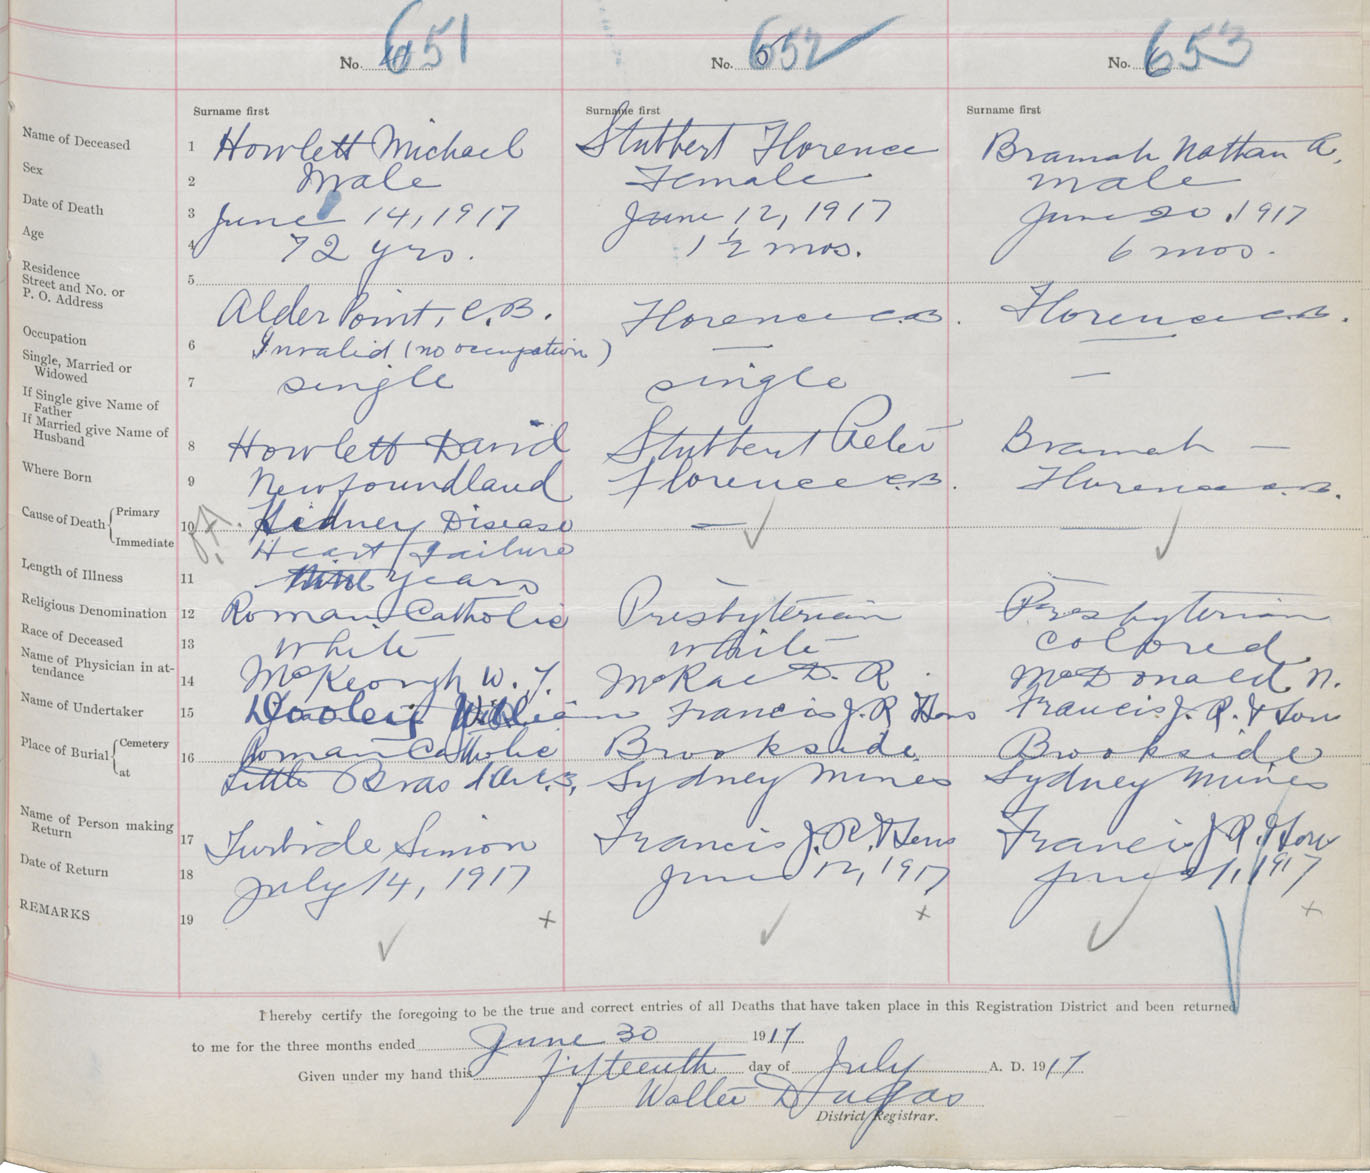 No. 651 No. 652 No. 653
Surname first Surname first Surname first
Name of Deceased 1 Howlett Michael Stubbert Florence Bramah Nathan A.
Sex 2 Male Female male
Date of Death 3 June 14, 1917 June 12, 1917 June 20, 1917
Age 4 72 yrs. 1½ mos. 6 mos.
Residence
Street and No. or 5
P. O. Address Alder Point, C.B. Florence C.B. Florence C.B.
Occupation 6 Invalid (no occupation) — —
Single, Married or
Widowed 7 single single —
If Single give Name of
Father
If Married give Name of
Husband 8 Howlett David Stubbert Peter Bramah —
Where Born 9 Newfoundland Florence C.B. Florence C.B.
Cause of Death { Primary 10 Kidney Disease — —
Immediate Heart Failure
Length of Illness 11 nine years — —
Religious Denomination 12 Roman Catholic Presbyterian Presbyterian
Race of Deceased 13 White white colored
Name of Physician in at-
tendance 14 McKeough W. J. McRae D. R. McDonald N.
Name of Undertaker 15 Dooley William Francis J. R. & Sons Francis J. R. & Sons
Place of Burial { Cemetery 16 Roman Catholic Brookside Brookside
at Little Bras d'Or C.B. Sydney Mines Sydney Mines
Name of Person making
Return 17 Turbide Simon Francis J. R. & Sons Francis J. R. & Sons
Date of Return 18 July 14, 1917 June 12, 1917 June 21, 1917
REMARKS 19
I hereby certify the foregoing to be the true and correct entries of all Deaths that have taken place in this Registration District and been returned
to me for the three months ended June 30 1917
Given under my hand this fifteenth day of July A. D. 1917
Walter Dugas
District Registrar.